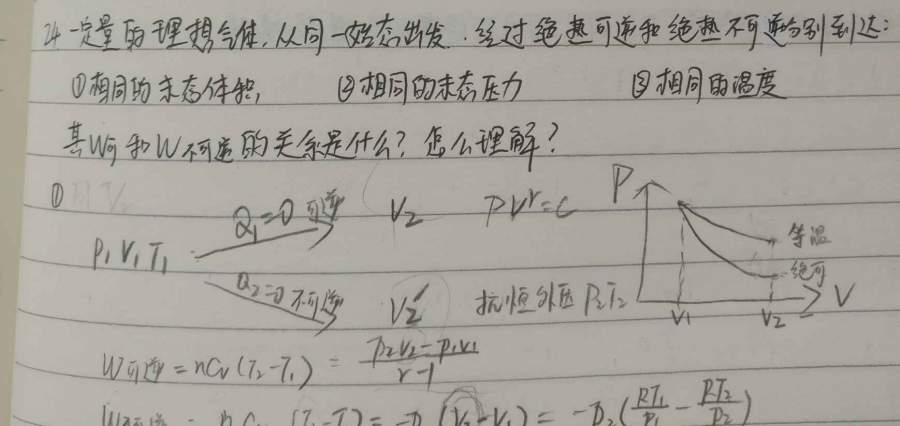 24 一定量的理想气体，从同一始态出发，经过绝热可逆和绝热不可逆分别到达：
①相同的末态体积， ②相同的末态压力 ③相同的温度
其W可和W不可逆的关系是什么？怎么理解？
①
P₁V₁T₁ Q₁=0 可逆 V₂ PVʳ=C
Q₂=0 不可逆 V₂′ 抗恒外压 P₂T₂
P 等温 绝可 V₁ V₂ V
W可逆=nCv(T₂-T₁) = (P₂V₂-P₁V₁)/(r-1)
(V₂-V₁) = -P₂(RT₁/P₁ - RT₂/P₂)